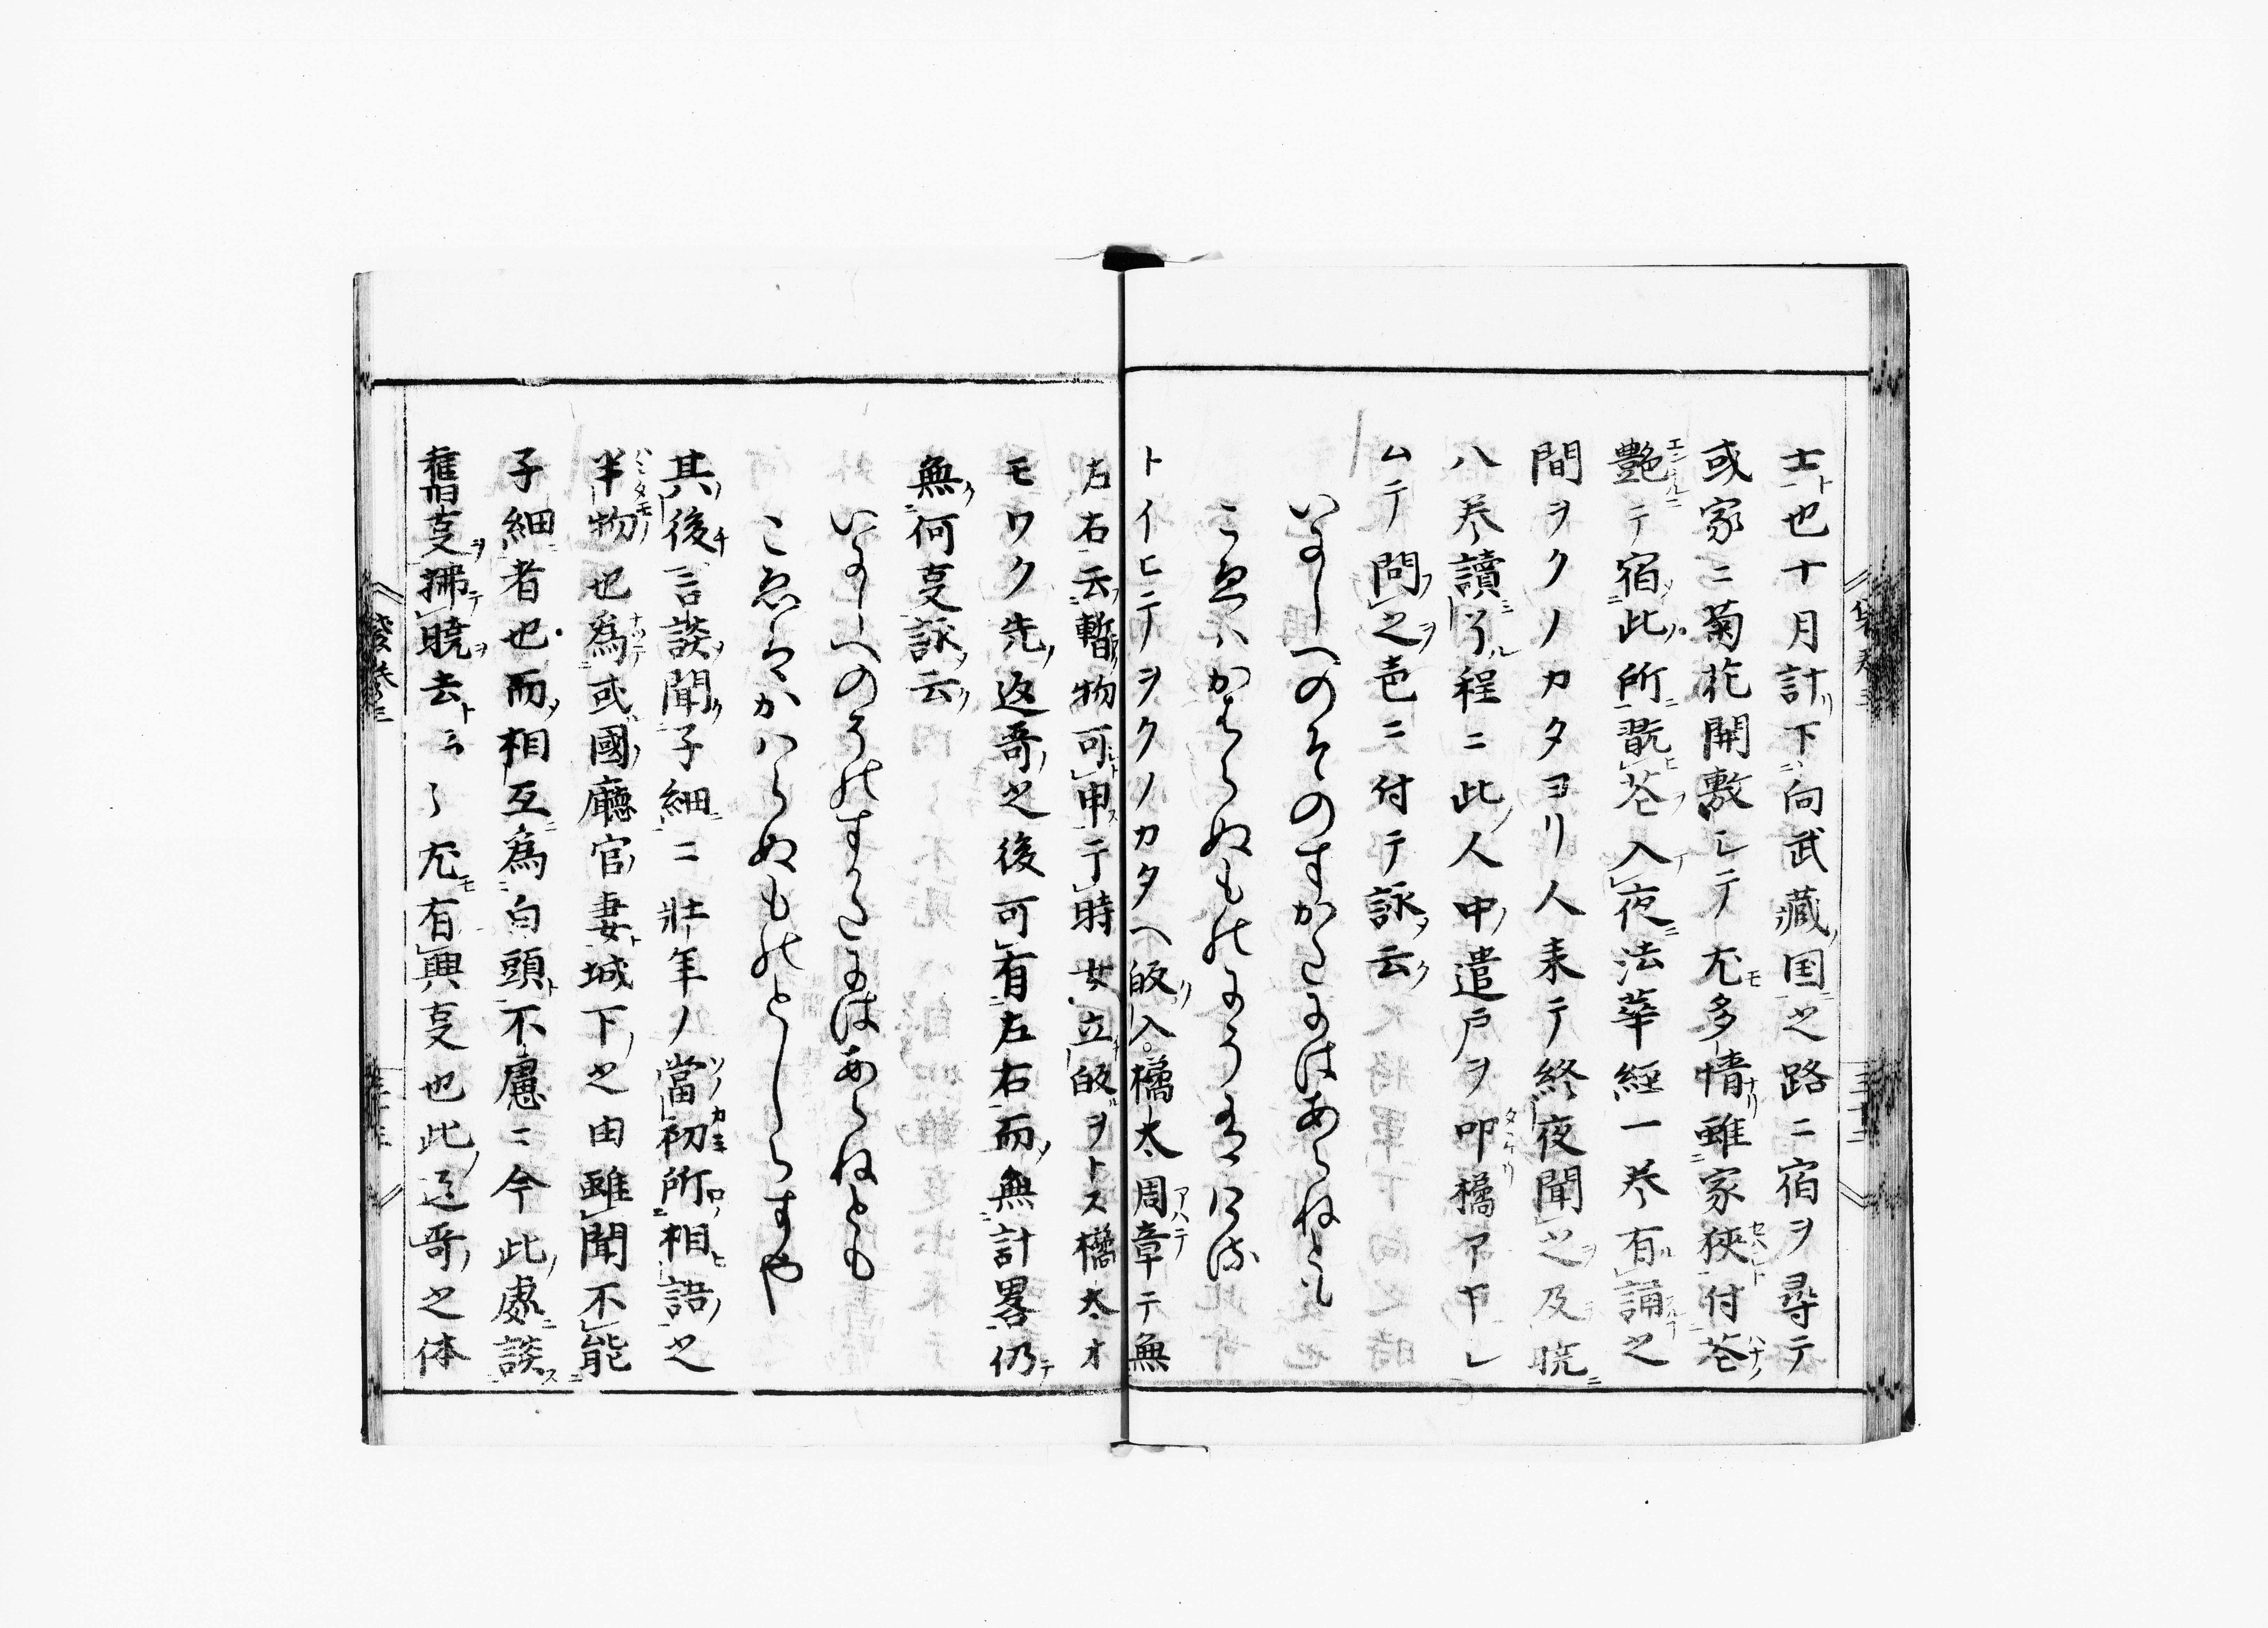 士也十月計下向武藏国之路ニ宿ヲ尋テ
或家ニ菊花開敷シテ尤多情雖家狹付花
艶テ宿此所翫花入夜法華經一巻有誦之
間ヲクノカタヨリ人来テ終夜聞之及暁
八巻讀了程ニ此人中遣戸ヲ叩橘ア下シ
ムテ問之壱ニ付テ詠云
いにしへのそのすかたにはあらねとも
こゑハかはらぬものにう有ける
トイヒテヲクノカタヘ皈入橘太周章テ無
左右云暫物可申于時女立皈ヲトス橘太オ
モワク先返哥之後可有左右而無計畧仍
無何㕝詠云
いにしへのそのすかたにはあらねとも
こゑはかハらぬものとしらすや
其後言談聞子細ニ壮年ノ當初所相語之
半物也為或國廳官妻城下之由雖聞不能
子細者也而相互為白頭不慮ニ今此處談
舊㕝拂暁去云々尤有興㕝也此返哥之体
袋巻三
三十二
袋巻三